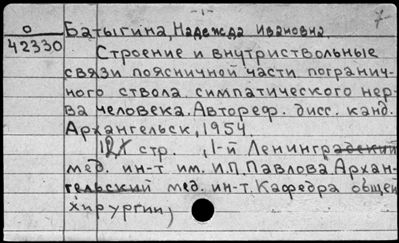 -1-
7
О Батыгина, Надежда Ивановна.
42330 Строение и внутриствольные
связи поясничной части погранич-
ного ствола симпатического нер-
ва человека. Автореф. дисс. канд.
Архангельск, 1954.
стр. ,1-й Ленинградский
мед. ин-т им. И.П.Павлова Архан-
гельский мед. ин-т. Кафедра общей
хирургии)